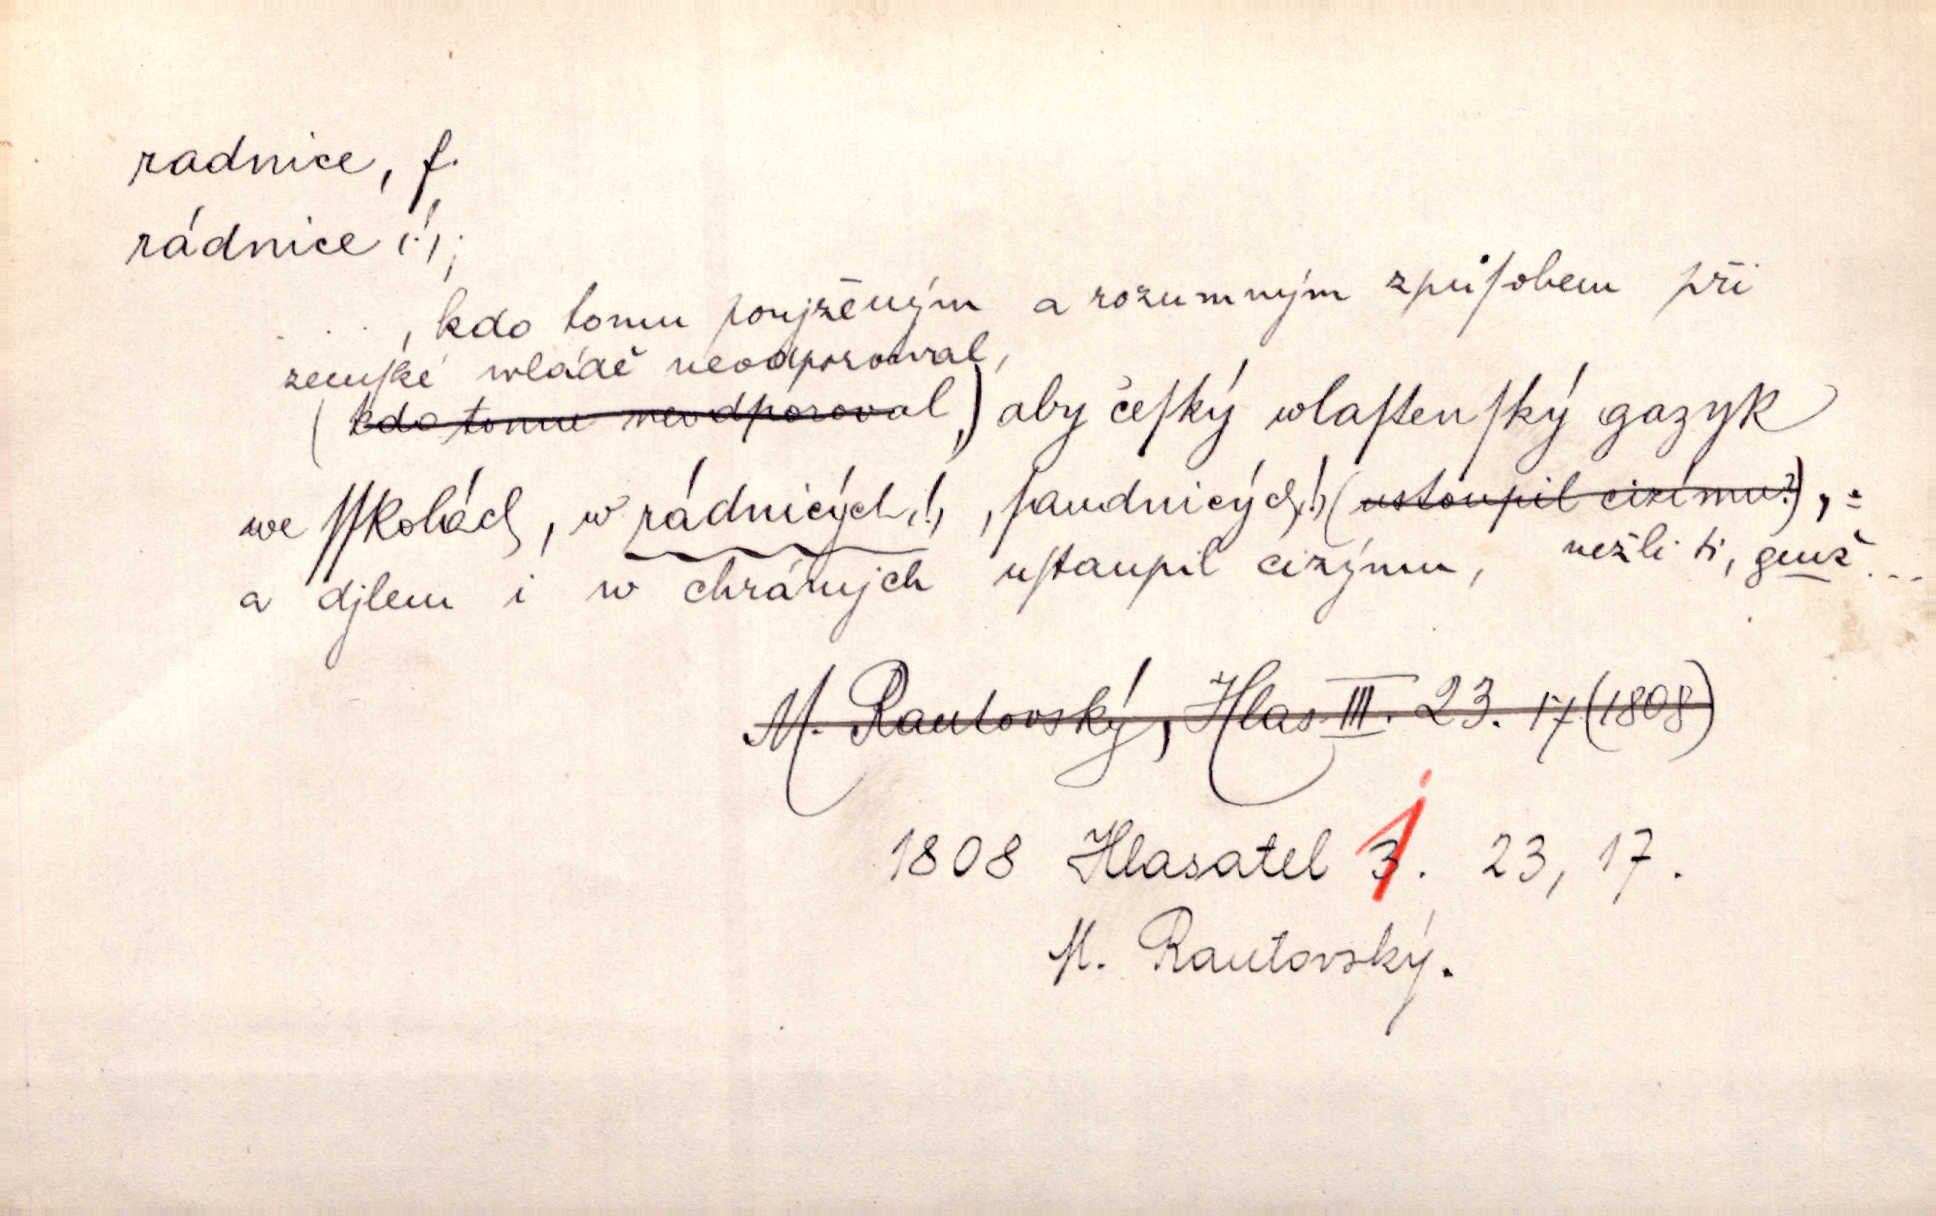 radnice, f.
rádnice (!);
... , kdo tomu ponjzěným a rozumným zpuſobem při
zemſké wládě neodporowal,
(kdo tomu neodporoval,) aby čeſký wlaſtenſký gazyk
we ſſkolách, w rádnicých (!), ſaudnicých (!) (ustoupil cizímu?), =
a djlem i w chrámjch uſtaupil cizýmu, nežli ti, genž ...
M. Rautovský, Hlas III. 23. 17 (1808)
1808 Hlasatel 3. 23, 17.
M. Rautovský.